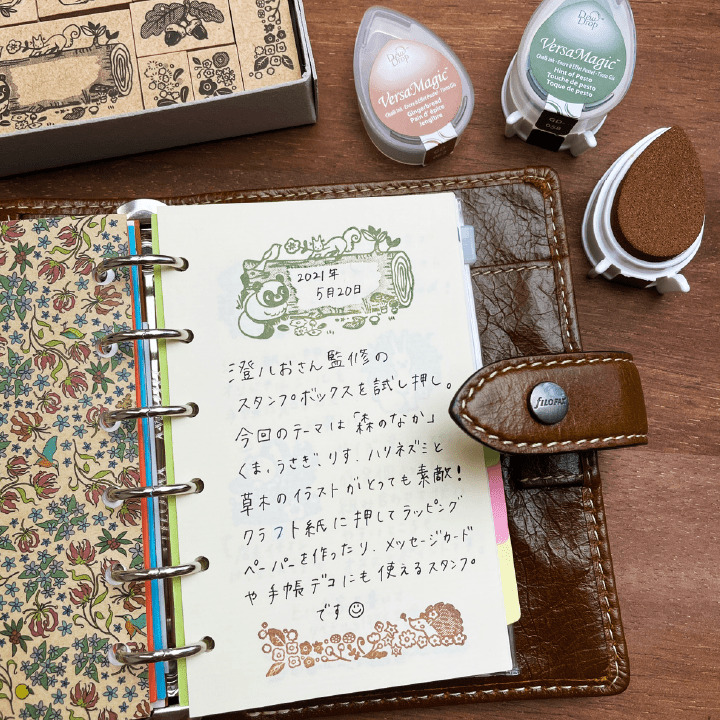 2021年
5月20日
澄ノおさん監修の
スタンプボックスを試し押し。
今回のテーマは「森のなか」
くま、うさぎ、りす、ハリネズミと
草木のイラストがとっても素敵!
クラフト紙に押してラッピング
ペーパーを作ったり、メッセージカード
や手帳デコにも使えるスタンプ
です☺
Dew Drop
VersaMagic™
Gingerbread
Pain d'épice
Dew Drop
VersaMagic™
Hint of Pesto
Touche de pesto
Toque de pesto
GD-
058
filofax